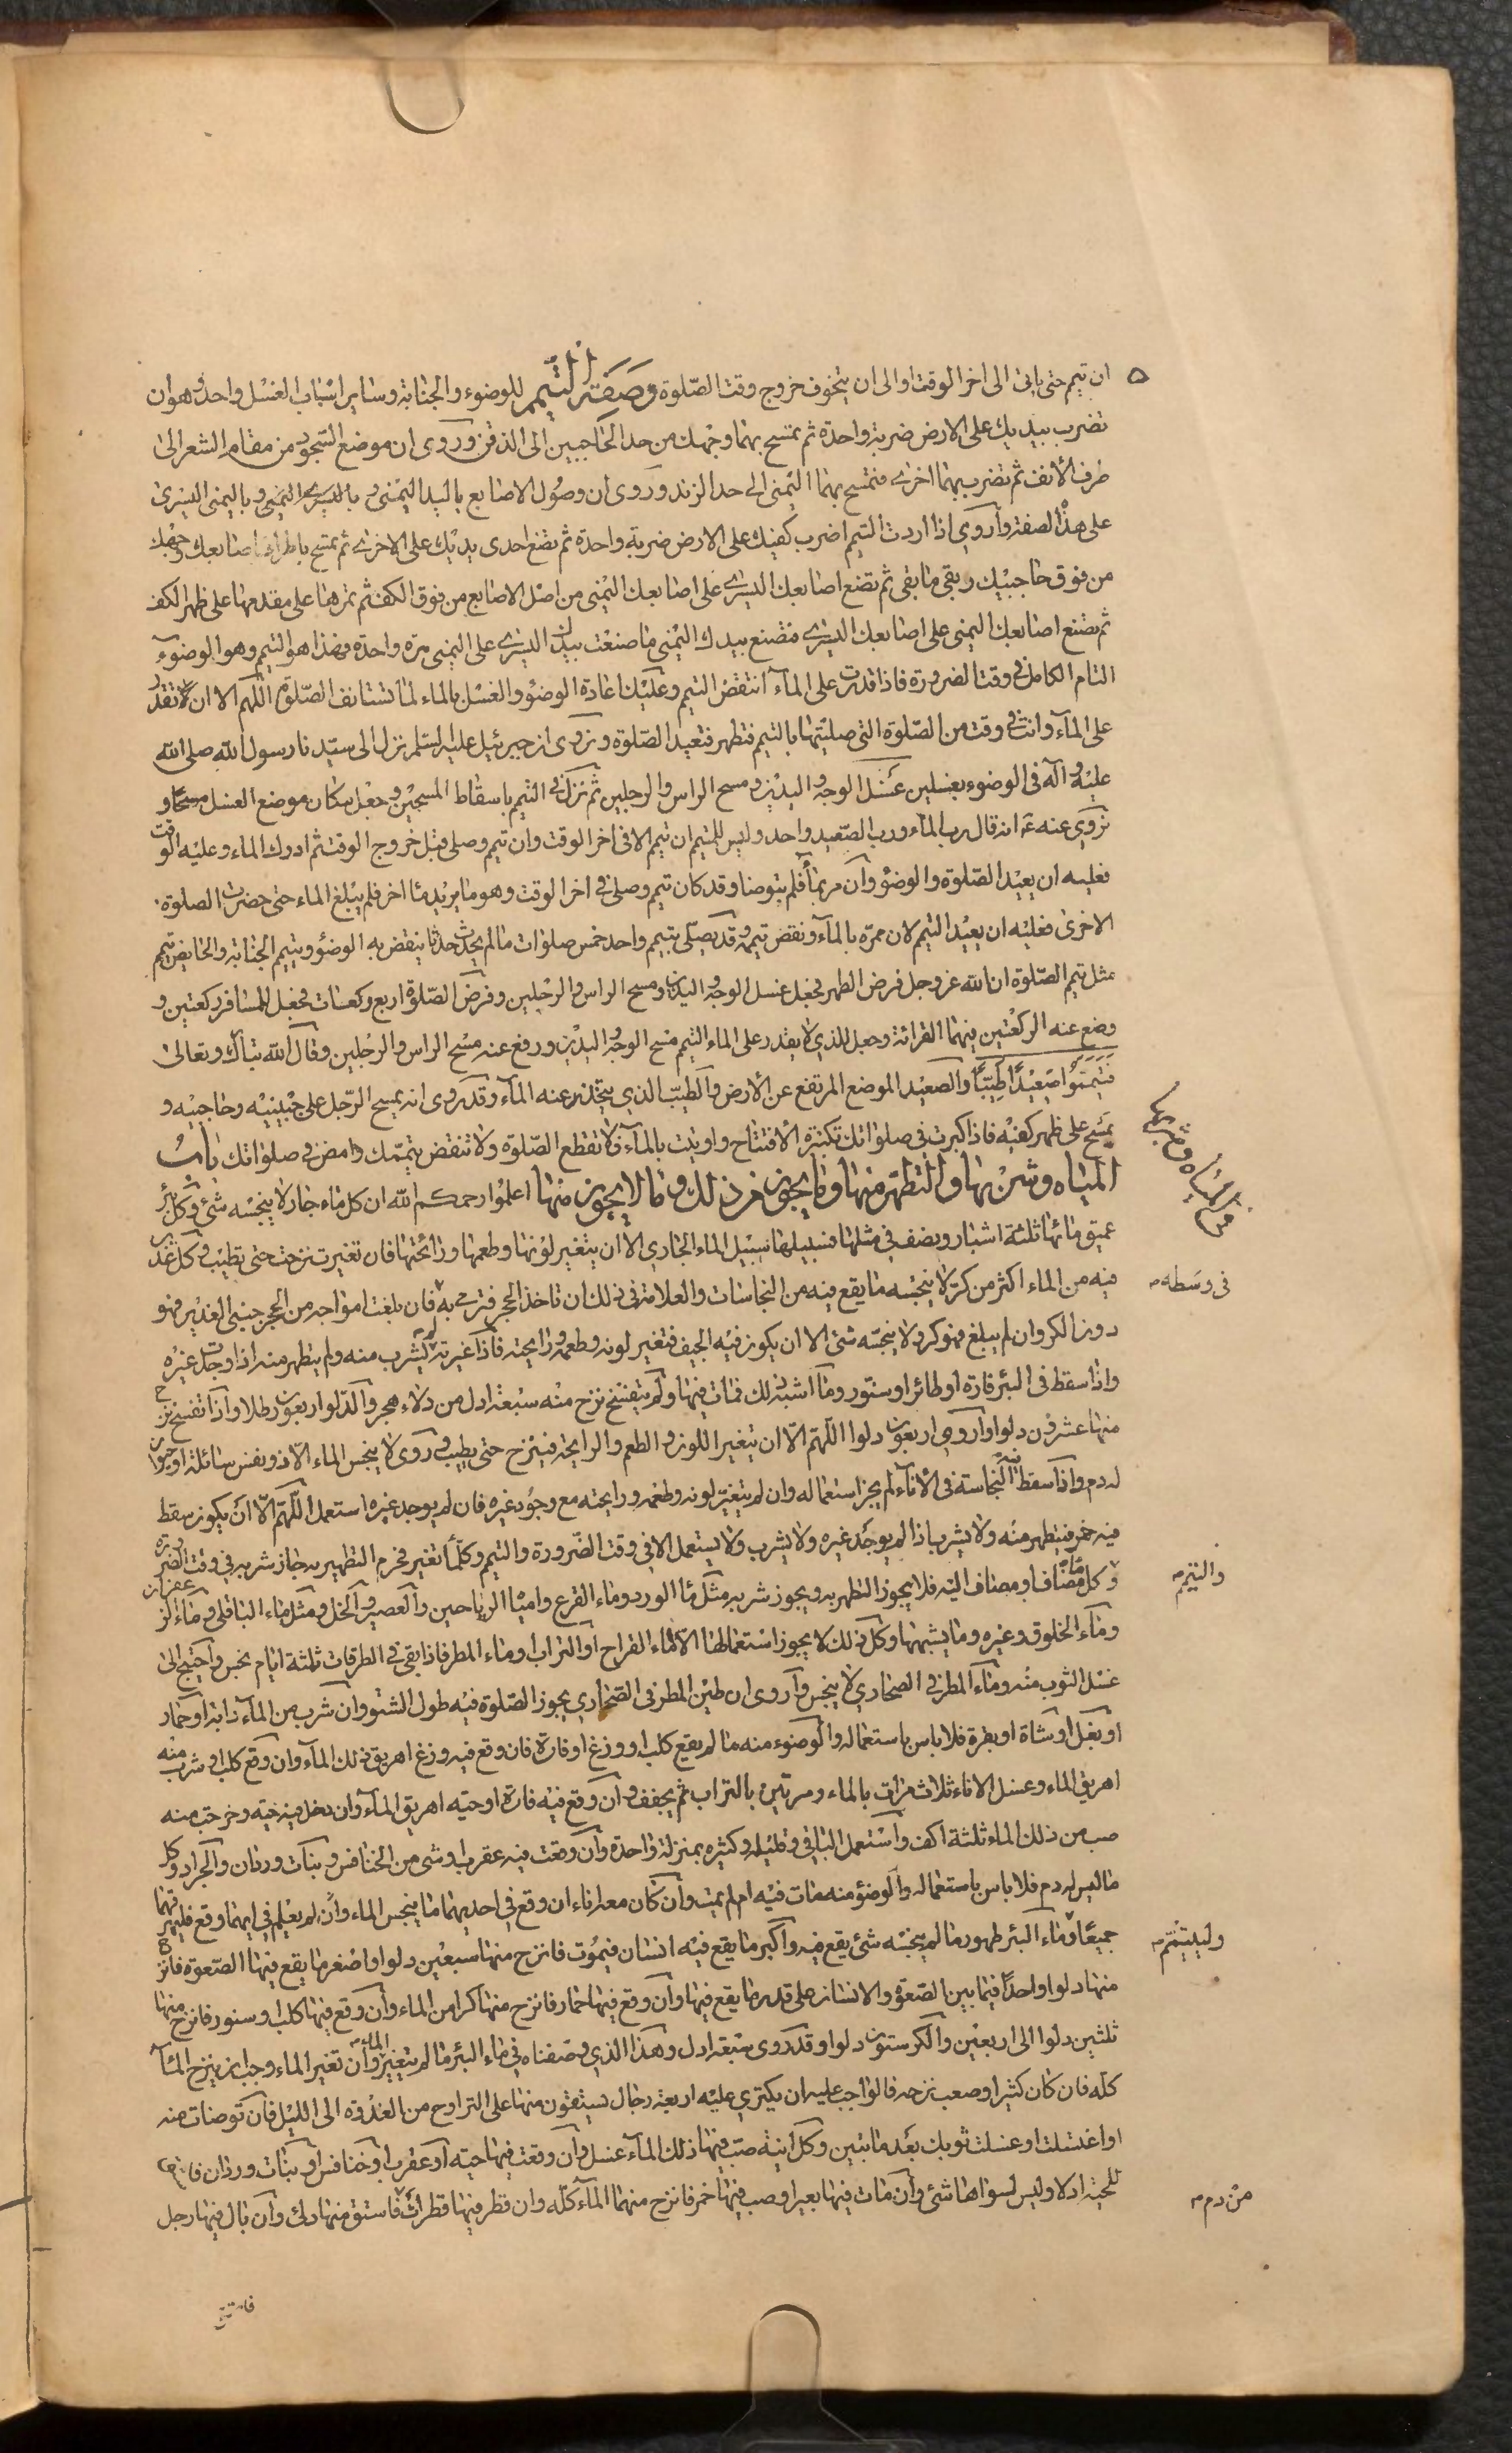 ان تيمم حتى ياتى الى اخر الوقت او الى ان يتخوف خروج وقت الصّلوة وصفة التيمم للوضوء والجنابة وساير اسباب الغسل واحد وهو ان
تضرب بيديك على الارض ضربة واحدة ثم تمسح بهما وجهك من حد الحاجبين الى الذقن وروى ان موضع السّجود من مقام الشعر الى
طرف الأنف ثم تضرب بهما اخرى فتمسح بهما اليمنى الى حد الزند وروى ان وصول الاصابع باليد اليمنى وباليسرى اليمنى وباليمنى اليسرى
على هذا لصفة وأروى اذا اردت التيمم اضرب كفيك على الارض ضربة واحدة ثم تضع احدى يديك على الاخرى ثم تمسح باطراف اصابعك وجهك
من فوق حاجبيك وبقى ما بقى ثم تضع اصابعك اليسرى على اصابعك اليمنى من اصل الاصابع من فوق الكف ثم تمرها على مقدمها على ظهر الكف
ثم تضع اصابعك اليمنى على اصابعك اليسرى فتصنع بيدك اليمنى ما صنعت بيدك اليسرى على اليمنى مرة واحدة فهذا هو التيمم وهو الوضوء
التام الكامل فى وقت الضرورة فاذا قدرت على المآء انتقض التيمم وعليك اعادة الوضوء والغسل بالماء لما تستانف الصّلوة اللّهم الا ان تقدر
على المآء وانت فى وقت من الصّلوة التى صليتها بالتيمم فتطهر فتعيد الصّلوة ونروى ان جبرئيل عليه السّلم نزل الى سيّدنا رسول الله صلى الله
عليه وآله فى الوضوء بغسلين غسل الوجه واليدين ومسح الراس والرجلين ثم نزل فى التيمم باسقاط المسحين وجعل مكان موضع الغسل مسحا و
نروى عنه ع انه قال رب المآء ورب الصّعيد واحد وليس للمتيمم ان تيمم الا فى اخر الوقت وان تيمم وصلى قبل خروج الوقت ثم ادرك الماء وعليه الوقت
فعليه ان يعيد الصّلوة والوضوء وان مر بمآء فلم يتوضا وقد كان تيمم وصلى فى اخر الوقت وهو ما يريد ماء اخر فلم يبلغ الماء حتى حضرت الصلوة
الاخرى فعليه ان يعيد التيمم لان ممره بالمآء ونقض تيممه وقد يصلّى بتيمم واحد خمس صلوات ما لم يحدث حدثا ينقض به الوضوء ويتيمم الجنابة والحايض تيمم
مثل تيمم الصّلوة ان الله عز وجل فرض الطهر فجعل غسل الوجه واليدين ومسح الراس والرجلين وفرض الصّلوة اربع ركعات فجعل للمسافر ركعتين و
وضع عنه الركعتين ليس فيهما القرائة وجعل للذي لا يقدر على الماء التيمم مسح الوجه واليدين ورفع عنه مسح الراس والرجلين وقال الله تبارك وتعالى
فتيمّموا صعيدًا طيّبًا والصعيد الموضع المرتفع عن الأرض والطيّب الذي يتحدر عنه المآء وقد روى انه يمسح الرّجل على جبينيه وحاجبيه و
يمسح على ظهر كفيه فاذا كبرت فى صلواتك تكبيرة الأفتتاح واوتيت بالمآء فلا تقطع الصّلوة ولا تنقض تيممك وامض فى صلواتك باب
المياه وشربها والتطهّر منها وما يجوز من ذلك وما لا يجوز منها اعلموا رحمكم الله ان كل ماء جار لا ينجسه شئ وكل بئر
عميق مائها ثلثة اشبار ونصف في مثلها فسبيلها سبيل الماء الجاري الا ان يتغير لونها وطعمها ورائحتها فان تغيرت نزحت حتى تطيب وكل غدير
فيه من الماء اكثر من كرّ لا ينجّسه ما يقع فيه من النجاسات والعلامة فى ذلك ان تاخذ الحجر فترمى به فان بلغت امواجه من الحجر جنبى الغدير فهو
فى وسطه
دون الكر وان لم يبلغ فهو كر ولا ينجّسه شئ الا ان يكون فيه الجيف فتغير لونه وطعمه ورايحته فاذا غيرته لم يشرب منه ولم يتطهر منه اذا وجدت غيره
واذا سقط فى البئر فارة او طائر او سنور وما اشبه ذلك فمات فيها ولم يتفسّخ نزح منه سبعة ادل من دلاء هجر والدّلو اربعون رطلا واذا تفسّخ نزح
منها عشرون دلوا واروى اربعون دلوا اللّهم الّا ان يتغير اللون والطعم والرايحة فينزح حتى يطيب وروى لا ينجس الماء الّا ذو نفس سائلة او حيوان
له دم واذا سقط النجاسة فى الأناء لم يجز استعماله وان لم يتغيّر لونه وطعمه ورايحته مع وجود غيره فان لم يوجد غيره استعمل اللّهم الّا ان يكون سقط
فيه خمر فيتطهر منه ولا يشرب اذا لم يوجد غيره ولا يشرب ولا يستعمل الا فى وقت الضّرورة والتيمم وكلّما تغير فحرم التطهير به جاز شربه في وقت الضرورة
والتيمم
وكل ماء مضاف او مضاف اليه فلا يجوز التطهر به ويجوز شربه مثل ماء الورد وماء القرع ومياه الرياحين والعصير والخل ومثل ماء الباقلى وماء الزعفران
وماء الخلوق وغيره وما يشبهها وكل ذلك لا يجوز استعمالها الا الماء القراح او التراب وماء المطر فاذا بقى فى الطرقات ثلثة ايام نجس واحتيج الى
غسل الثوب منه وماء المطر فى الصحاري لا ينجس وأروى ان طين المطر فى الصحاري يجوز الصّلوة فيه طول الشتو وان شرب من المآء دابة او حمار
او بغل او شاة او بقرة فلا باس باستعماله والوضوء منه ما لم يقع كلب او وزغ او فارة فان وقع فيه وزغ اهريق ذلك المآء وان وقع كلب او شرب منه
اهريق الماء وغسل الاناء ثلاث مرات بالماء ومرتين بالتراب ثم يجفف وان وقع فيه فارة او حيه اهريق المآء وان دخل فيه حيه وخرجت منه
صب من ذلك الماء ثلثة اكف واستعمل الباقى وقليله وكثيره بمنزلة واحدة وان وقعت فيه عقرب او شئ من الخنافس وبنات وردان والجراد وكل
ما ليس له دم فلا باس باستعماله والوضوء منه مات فيه ام لم يمت وان كان معه اناءان وقع فى احديهما ما ينجس الماء وان لم يعلم فى ايهما وقع فليهرقهما
جميعا وماء البئر طهور ما لم ينجسه شئ يقع فيه واكبر ما يقع فيه انسان فيموت فانزح منها سبعين دلوا واصغر ما يقع فيها الصّعوة فانزح
وليتيمّم
منها دلوا واحدًا فيما بين الصّعوة والانسان على قدر ما يقع فيها وان وقع فيها حمار فانزح منها كرا من الماء وان وقع فيها كلب او سنور فانزح منها
ثلثين دلوا الى اربعين والكر ستون دلوا وقد روى سبعة ادل وهذا الذي وصفناه في ماء البئر ما لم يتغير الماء وان تغير الماء وجب ان ينزح المآء
كلّه فان كان كثيرا وصعب نزحه فالواجب عليه ان يكترى عليه اربعة رجال يستقون منها على التراوح من الغدوة الى الليل فان توضات منه
او اغتسلت او غسلت ثوبك بعد ما تبين وكل انية صبّ فيها ذلك المآء غسل وان وقعت فيها حيّة او عقرب او خنافس او بنات وردان فاستق
للحيّة ادلا وليس لسواها شئ وان مات فيها بعير او صب فيها خمر فانزح منها المآء كلّه وان قطر فيها قطرات فاستق منها دلاء وان بال فيها رجل
من دم
فاستق